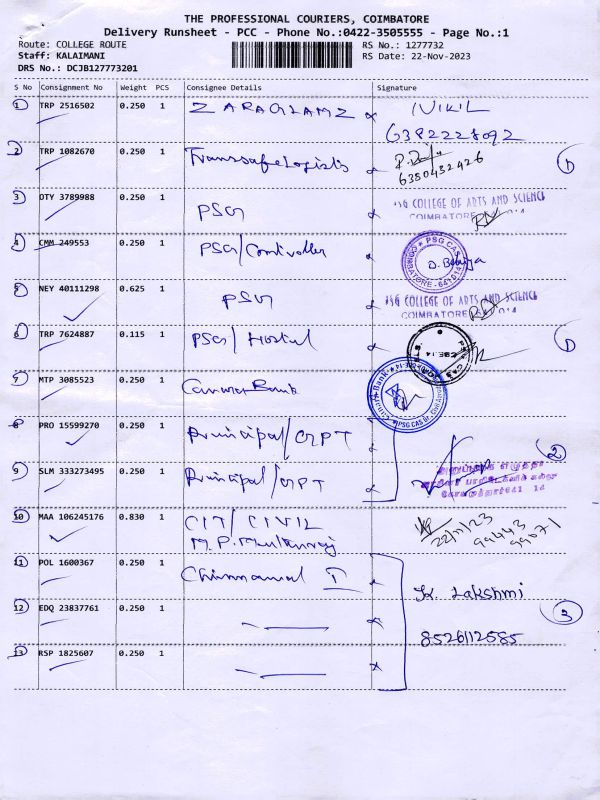 THE PROFESSIONAL COURIERS, COIMBATORE
Delivery Runsheet - PCC - Phone No.:0422-3505555 - Page No.:1
Route: COLLEGE ROUTE RS No.: 1277732
Staff: KALAIMANI RS Date: 22-Nov-2023
DRS No.: DCJB127773201
S No Consignment No Weight PCS Consignee Details Signature
1 TRP 2516502 0.250 1 ZARAGLAMZ NIKIL
6382228092
2 TRP 1082670 0.250 1 Transsafe Logistis
6380432426
1
3 DTY 3789988 0.250 1 PSG PSG COLLEGE OF ARTS AND SCIENCE
COIMBATORE 014
4 CMM 249553 0.250 1 PSG/Controller PSG CAS
5 NEY 40111298 0.625 1 PSG PSG COLLEGE OF ARTS AND SCIENCE
COIMBATORE 014
6 TRP 7624887 0.115 1 PSG/Hostel
1
7 MTP 3085523 0.250 1 Canara Bank
8 PRO 15599270 0.250 1 Principal/GPT
2
9 SLM 333273495 0.250 1 Principal/GPT
10 MAA 106245176 0.830 1 CIT/CIVIL 22/11/23
99443
99071
11 POL 1600367 0.250 1 Chinnamal
K. Lakshmi
12 EDQ 23837761 0.250 1
3
8526112585
13 RSP 1825607 0.250 1